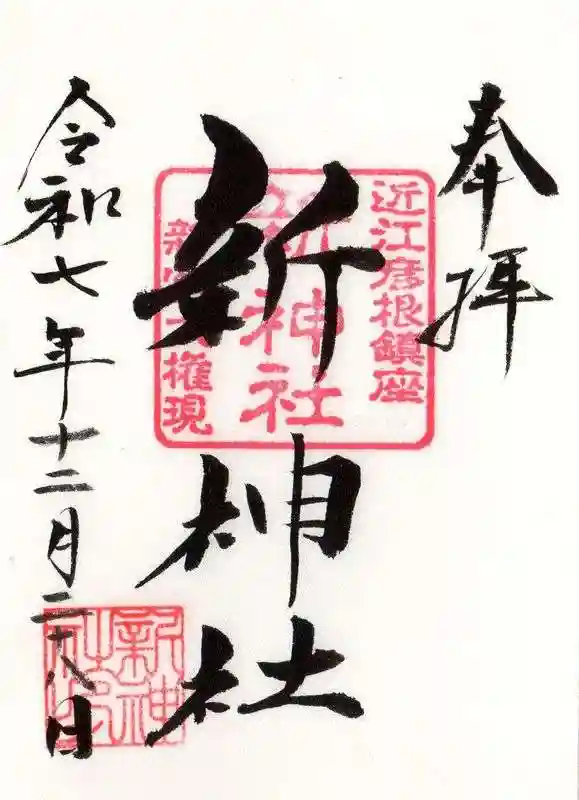 奉拝
近江彦根鎮座
新神社
権現
新神社
令和七年十二月二十八日
新神
社